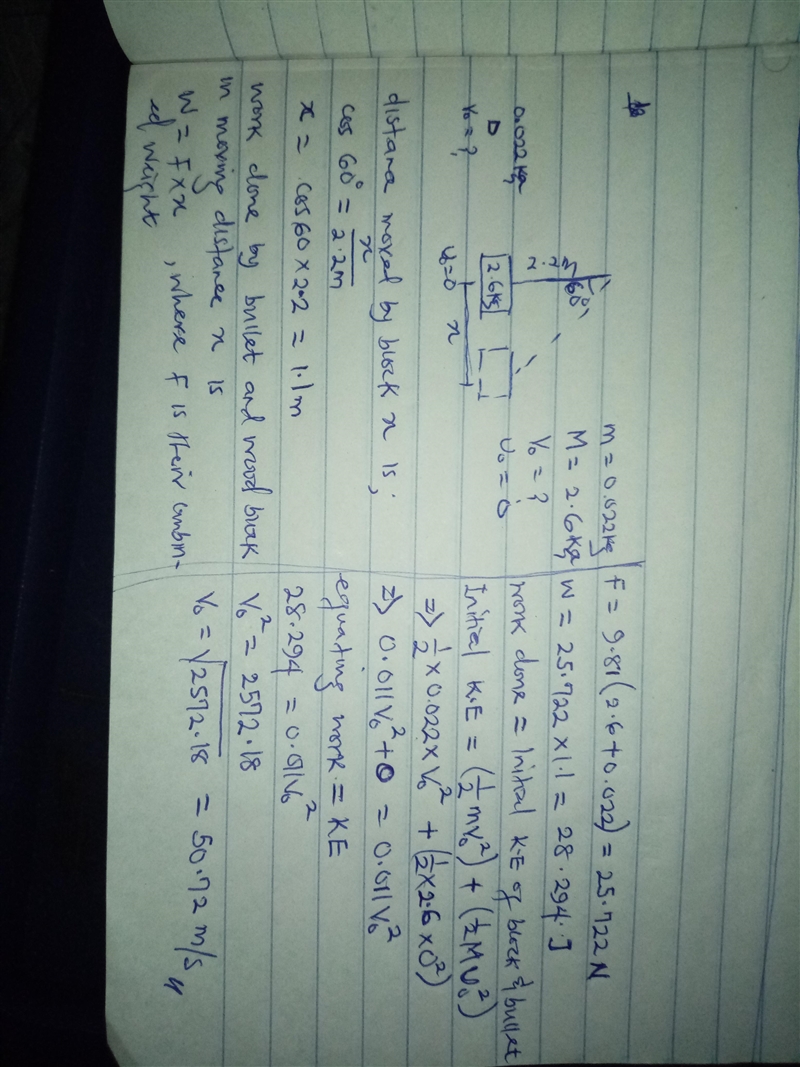 0.022kg
V₀ = ?
2.2m
60°
2.6kg
U₀=0
x
m = 0.022kg
M = 2.6kg
V₀ = ?
U₀ = 0
distance moved by block x is;
cos 60° = x/2.2m
x = cos60 × 2.2 = 1.1m
work done by bullet and wood block
in moving distance x is
W = F×x , where F is their combin-
ed weight
F = 9.81(2.6+0.022) = 25.722 N
W = 25.722 × 1.1 = 28.294 . J
work done = Initial K.E of block & bullet
Initial K.E = (½mV₀²) + (½MU₀²)
=> ½ × 0.022 × V₀² + (½×2.6×0²)
=> 0.011V₀² + 0 = 0.011V₀²
equating work = KE
28.294 = 0.011V₀²
V₀² = 2572.18
V₀ = √2572.18 = 50.72 m/s